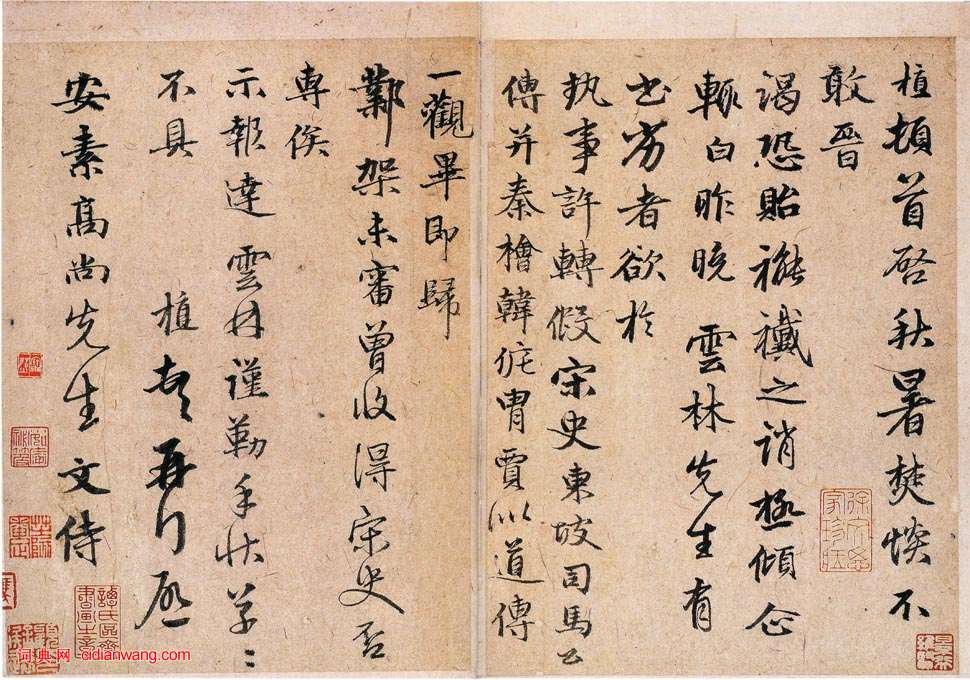 植頓首啓秋暑焚惔不
敢晋
謁恐貽褦襶之誚極傾企
輒白昨晚雲林先生有
出劳者欲於
执事許轉假宋史東坡司馬公
傳并秦檜韓侂冑賈似道傳
一觀畢即歸
鄴架未審曾收得宋史否
專俟
示報達雲林謹勒手狀草〻
不具 植頓首再行啓
安素高尚先生文侍
词典网 cidianwang.com